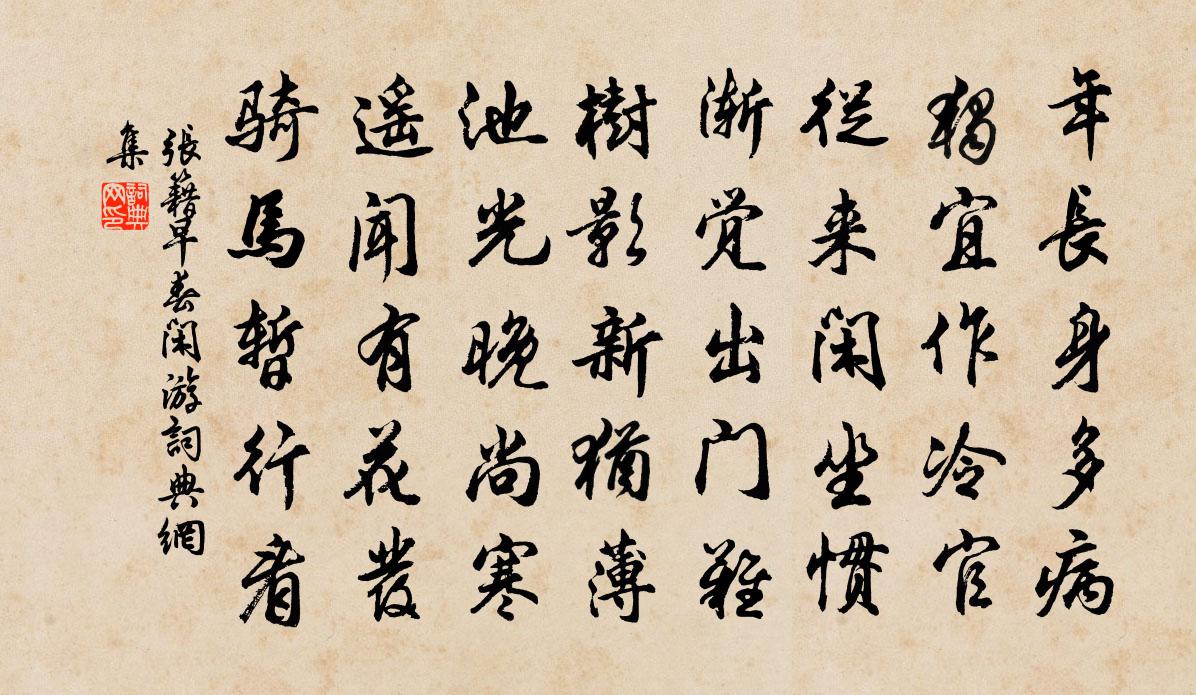 年長身多病
獨宜作冷官
從来閑坐慣
渐覺出门難
樹影新猶薄
池光晚尚寒
遥聞有花發
骑馬暫行看
張籍早春閑游詞典網
集
詞典网印